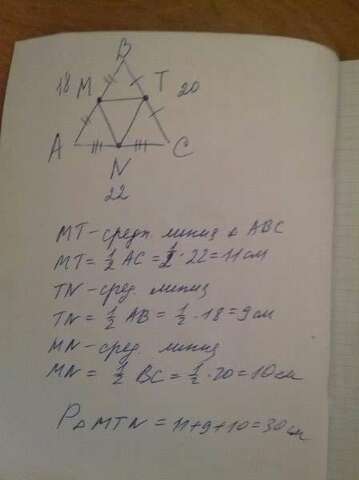 B
18 M T 20
A C
N
22
MT - средн. линия Δ ABC
MT = 1/2 AC = 1/2 · 22 = 11 см
TN - сред. линия
TN = 1/2 AB = 1/2 · 18 = 9 см
MN - сред. линия
MN = 1/2 BC = 1/2 · 20 = 10 см
P Δ MTN = 11+9+10 = 30 см